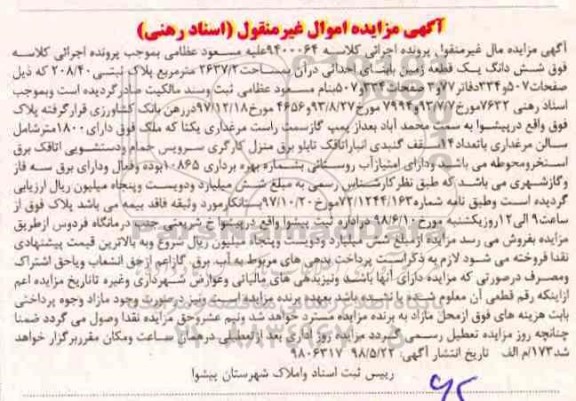 آگهی مزایده اموال غیر منقول (اسناد رهنی)
آگهی مزایده مال غیرمنقول پرونده اجرائی کلاسه ۹۴۰۰۰۶۴علیه مسعود عظامی بموجب پرونده اجرائی کلاسه
فوق شش دانگ یک قطعه زمین بابنای احداثی درآن بمساحت۲۶۳۷/۲ مترمربع پلاک ثبتی۲۰۸/۴۰ که ذیل
صفحات۵۰۷و۳۳۴دفاتر۷۷و۳ صفحات۳۳۴و۵۰۷بنام مسعود عظامی ثبت وسند مالکیت صادرگردیده است وبموجب
اسناد رهنی ۷۶۳۲مورخ۹۳/۷/۷و۷۹۹۴ مورخ۹۳/۸/۲۷و۴۶۵۶ مورخ۹۷/۱۲/۱۸دررهن بانک کشاورزی قرارگرفته پلاک
فوق واقع درپیشوا به سمت محمد آباد بعداز پمپ گازسمت راست مرغداری یکتا که ملک فوق دارای۱۸۰۰مترشامل
سالن مرغداری باتعداد۱۴سقف گنبدی انباراتاقک تابلو برق منزل کارگری سرویس حمام ودستشویی اتاقک برق
استخرومحوطه می باشد ودارای امتیازآب روستائی بشماره بهره برداری ۱۰۸۶۵بوده وفعال ودارای برق سه فاز
وگازشهری می باشد که طبق نظرکارشناس رسمی به مبلغ شش میلیارد ودویست وپنجاه میلیون ریال ارزیابی
گردیده است وطبق نامه شماره۷۲/۱۲۴۴/۱۶۳مورخ۹۷/۱۰/۲۰بستانکارمورد وثیقه فاقد بیمه می باشد پلاک فوق از
ساعت۹ الی۱۲روزیکشنبه مورخ۹۸/۶/۱۰ دراداره ثبت پیشوا واقع درپیشوا خ شریعتی جنب درمانگاه فردوس ازطریق
مزایده بفروش می رسد مزایده ازمبلغ شش میلیارد ودویست وپنجاه میلیون ریال شروع وبه بالاترین قیمت پیشنهادی
نقدا فروخته می شود لازم به ذکراست پرداخت بدهی های مربوط به آب، برق، گازاعم ازحق انشعاب ویاحق اشتراک
ومصرف درصورتی که مزایده دارای آنها باشد ونیزبدهی های مالیاتی وعوارض شهرداری وغیره تاتاریخ مزایده اعم
ازاینکه رقم قطعی آن معلوم شده یا نشده باشد بعهده برنده مزایده است ونیز درصورت وجود مازاد وجوه پرداختی
بابت هزینه های فوق ازمحل مازاد به برنده مزایده مسترد خواهد شد ونیم عشروحق مزایده نقدا وصول می گردد ضمنا
چنانچه روز مزایده تعطیل رسمی گردد مزایده روز اداری بعد ازتعطیلی درهمان ساعت ومکان مقرربرگزار خواهد
شد۱۷۳/م الف تاریخ انتشار آگهی: ۹۸/۵/۲۲ ۹۸۰۶۳۱۷
رییس ثبت اسناد واملاک شهرستان پیشوا